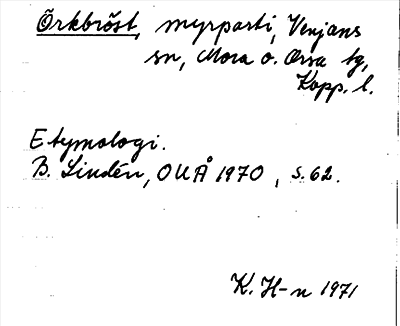 Örkbröst, myrparti, Venjans
sn, Mora o. Orsa tg,
Kopp. l.
Etymologi.
B. Lindén, OUÅ 1970, s. 62.
K. H-n 1971